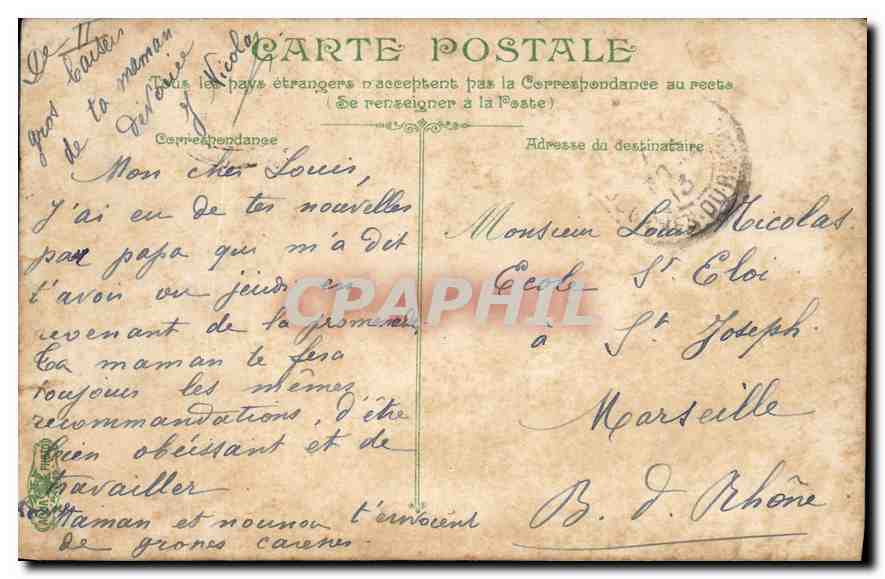 CARTE POSTALE
Tous les pays étrangers n'acceptent pas la Correspondance au recto
(Se renseigner à la Poste)
Correspondance
Adresse du destinataire
gros baisers
de ta maman
Nicolas
Mon cher Louis,
J'ai eu de tes nouvelles
par papa qui m'a dit
t'avoir vu jeudi en
revenant de la promenade
Ta maman te fera
toujours les mêmes
recommandations, d'être
bien obéissant et de
travailler
Maman et nounou t'envoient
de grosses caresses.
Monsieur Louis Nicolas.
Ecole St Eloi
à St Joseph.
Marseille
B. d. Rhône
13
CPAPHIL